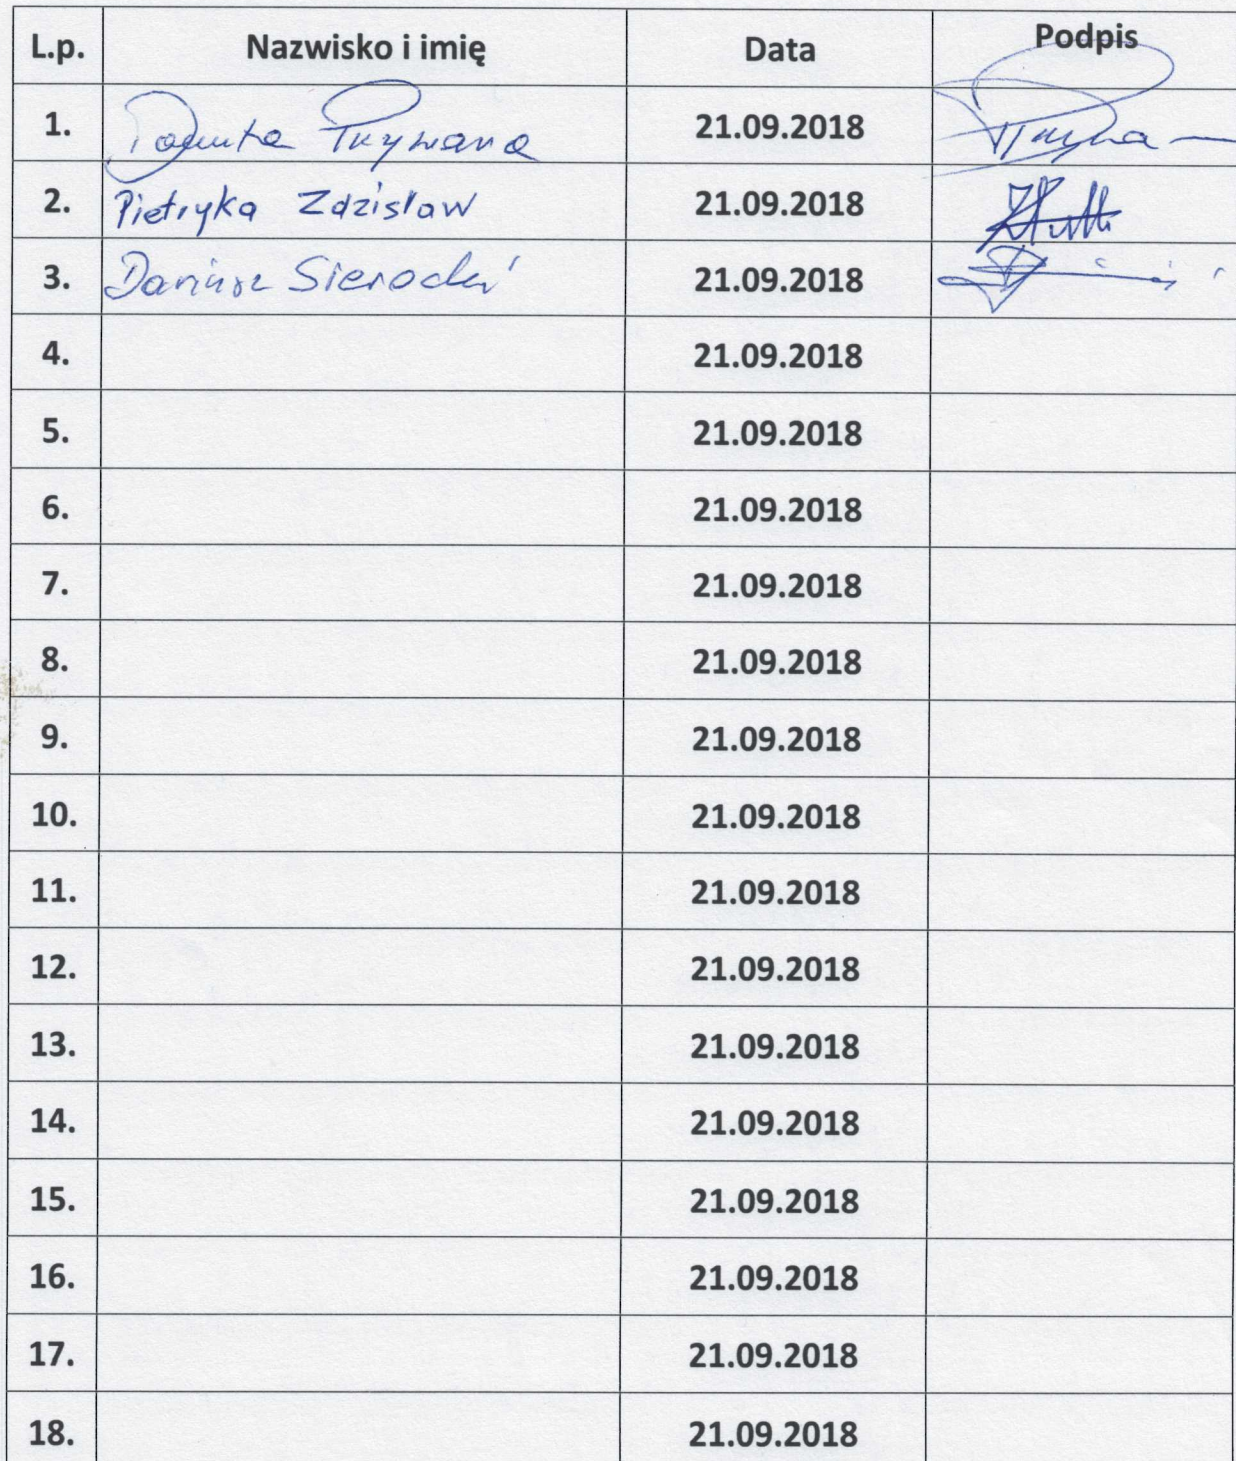 L.p. Nazwisko i imię Data Podpis
1. Danuta 21.09.2018
2. Pietryka Zdzisław 21.09.2018
3. Dariusz Sierocki 21.09.2018
4. 21.09.2018
5. 21.09.2018
6. 21.09.2018
7. 21.09.2018
8. 21.09.2018
9. 21.09.2018
10. 21.09.2018
11. 21.09.2018
12. 21.09.2018
13. 21.09.2018
14. 21.09.2018
15. 21.09.2018
16. 21.09.2018
17. 21.09.2018
18. 21.09.2018